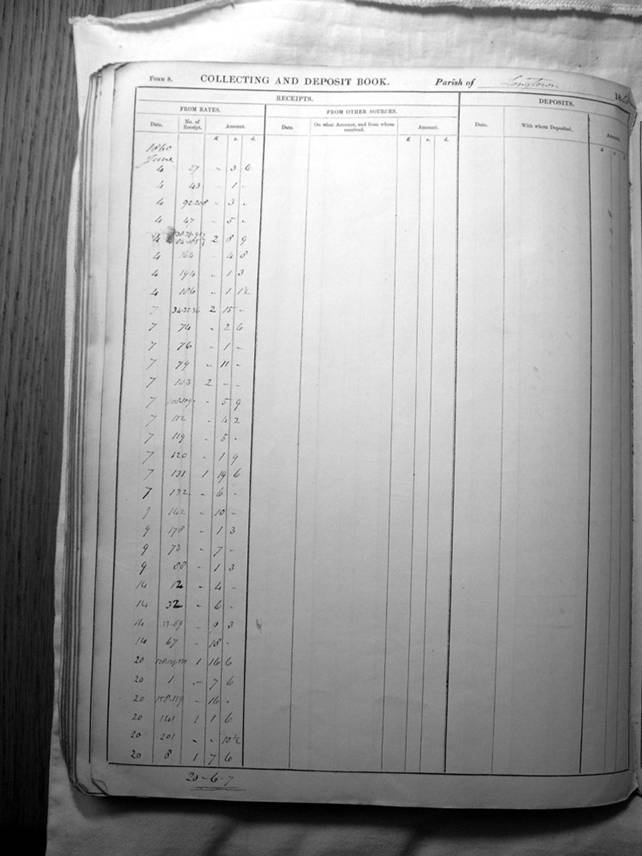 Form 8. COLLECTING AND DEPOSIT BOOK. Parish of Longtown 18
RECEIPTS. DEPOSITS.
FROM RATES. FROM OTHER SOURCES.
Date. No. of Receipt. Amount. Date. On what Account, and from whom received. Amount. Date. With whom Deposited. Amount
£. s. d. £. s. d.
1860
June
4 27 - 3 6
4 43 - 1 -
4 - 3 -
4 47 - 5 -
4 2 8 9
4 164 - 4 8
4 194 - 1 3
4 186 - 1 1½
7 2 15 -
7 74 - 2 6
7 76 - 1 -
7 79 - 11 -
7 103 2 - -
7 - 5 9
7 112 - 4 2
7 119 - 5 -
7 120 - 1 9
7 131 1 19 6
7 132 - 6 -
142 - 10 -
9 178 - 1 3
9 73 - 7 -
9 88 - 1 3
14 12 - 4 -
14 32 - 6 -
14 - 3
14 67 - 18 -
20 1 16 6
20 1 - 7 6
20 - 16 -
20 141 1 1 6
20 201 - - 10½
20 8 1 7 6
20-6-7